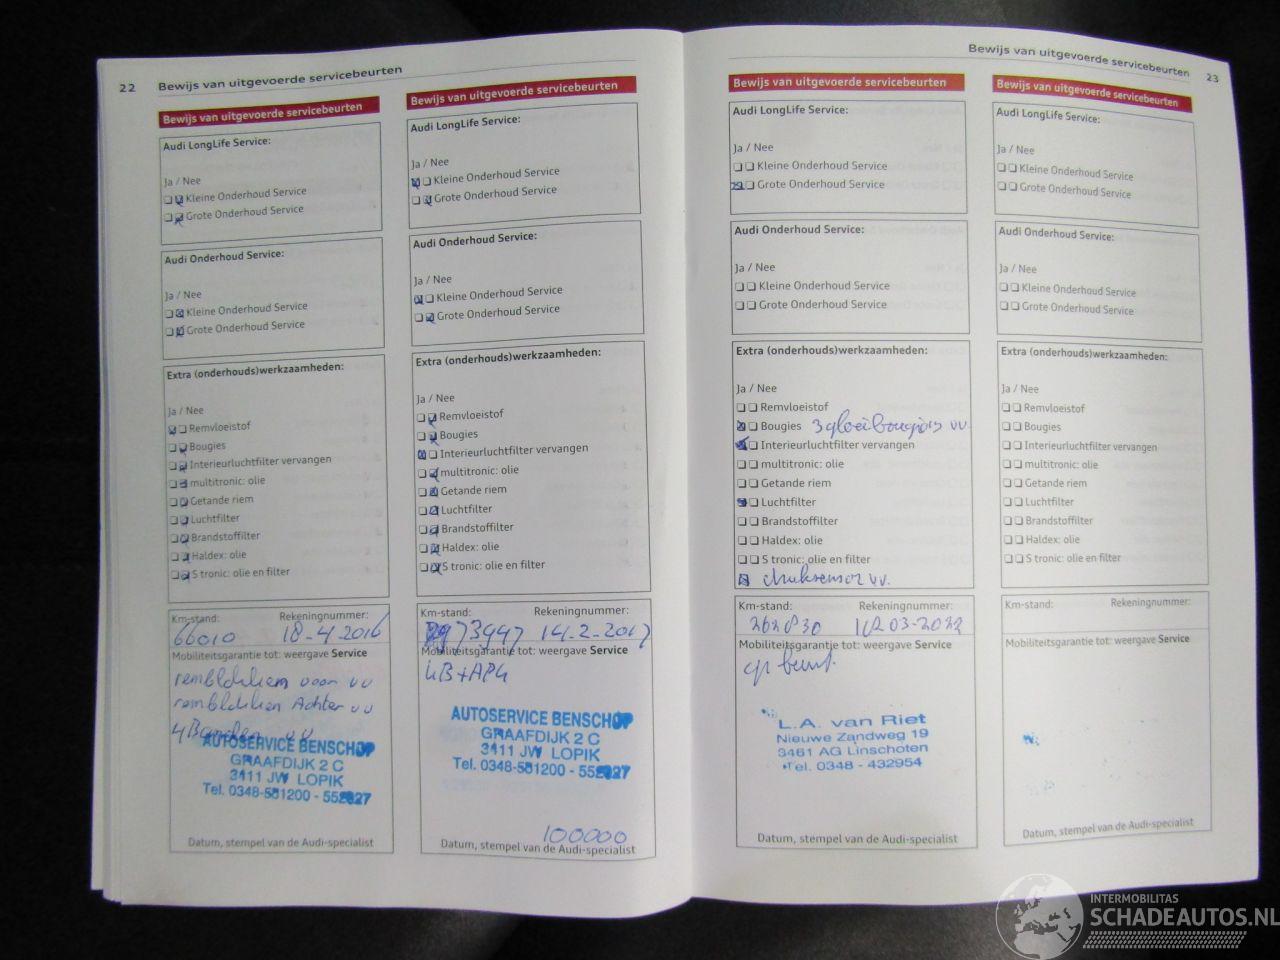 22 Bewijs van uitgevoerde servicebeurten
Bewijs van uitgevoerde servicebeurten
Audi LongLife Service:
Ja / Nee
Kleine Onderhoud Service
Grote Onderhoud Service
Audi Onderhoud Service:
Ja / Nee
Kleine Onderhoud Service
Grote Onderhoud Service
Extra (onderhouds)werkzaamheden:
Ja / Nee
Remvloeistof
Bougies
Interieurluchtfilter vervangen
multitronic: olie
Getande riem
Luchtfilter
Brandstoffilter
Haldex: olie
S tronic: olie en filter
Km-stand: Rekeningnummer:
66010 18-4-2016
Mobiliteitsgarantie tot: weergave Service
remblokken voor vv
remblokken Achter vv
4 Banden vv
AUTOSERVICE BENSCHOP
GRAAFDIJK 2 C
3411 JW LOPIK
Tel. 0348-551200 - 552827
Datum, stempel van de Audi-specialist
Bewijs van uitgevoerde servicebeurten
Audi LongLife Service:
Ja / Nee
Kleine Onderhoud Service
Grote Onderhoud Service
Audi Onderhoud Service:
Ja / Nee
Kleine Onderhoud Service
Grote Onderhoud Service
Extra (onderhouds)werkzaamheden:
Ja / Nee
Remvloeistof
Bougies
Interieurluchtfilter vervangen
multitronic: olie
Getande riem
Luchtfilter
Brandstoffilter
Haldex: olie
S tronic: olie en filter
Km-stand: Rekeningnummer:
73947 14-2-2017
Mobiliteitsgarantie tot: weergave Service
KB+APK
AUTOSERVICE BENSCHOP
GRAAFDIJK 2 C
3411 JW LOPIK
Tel. 0348-551200 - 552827
100000
Datum, stempel van de Audi-specialist
Bewijs van uitgevoerde servicebeurten 23
Bewijs van uitgevoerde servicebeurten
Audi LongLife Service:
Ja / Nee
Kleine Onderhoud Service
Grote Onderhoud Service
Audi Onderhoud Service:
Ja / Nee
Kleine Onderhoud Service
Grote Onderhoud Service
Extra (onderhouds)werkzaamheden:
Ja / Nee
Remvloeistof
Bougies 3 gloeibougies vv.
Interieurluchtfilter vervangen
multitronic: olie
Getande riem
Luchtfilter
Brandstoffilter
Haldex: olie
S tronic: olie en filter
druksensor vv.
Km-stand: Rekeningnummer:
03-2022
Mobiliteitsgarantie tot: weergave Service
gr beurt.
L.A. van Riet
Nieuwe Zandweg 19
3461 AG Linschoten
Tel. 0348 - 432954
Datum, stempel van de Audi-specialist
Bewijs van uitgevoerde servicebeurten
Audi LongLife Service:
Ja / Nee
Kleine Onderhoud Service
Grote Onderhoud Service
Audi Onderhoud Service:
Ja / Nee
Kleine Onderhoud Service
Grote Onderhoud Service
Extra (onderhouds)werkzaamheden:
Ja / Nee
Remvloeistof
Bougies
Interieurluchtfilter vervangen
multitronic: olie
Getande riem
Luchtfilter
Brandstoffilter
Haldex: olie
S tronic: olie en filter
Km-stand: Rekeningnummer:
Mobiliteitsgarantie tot: weergave Service
Datum, stempel van de Audi-specialist
INTERMOBILITAS
SCHADEAUTOS.NL